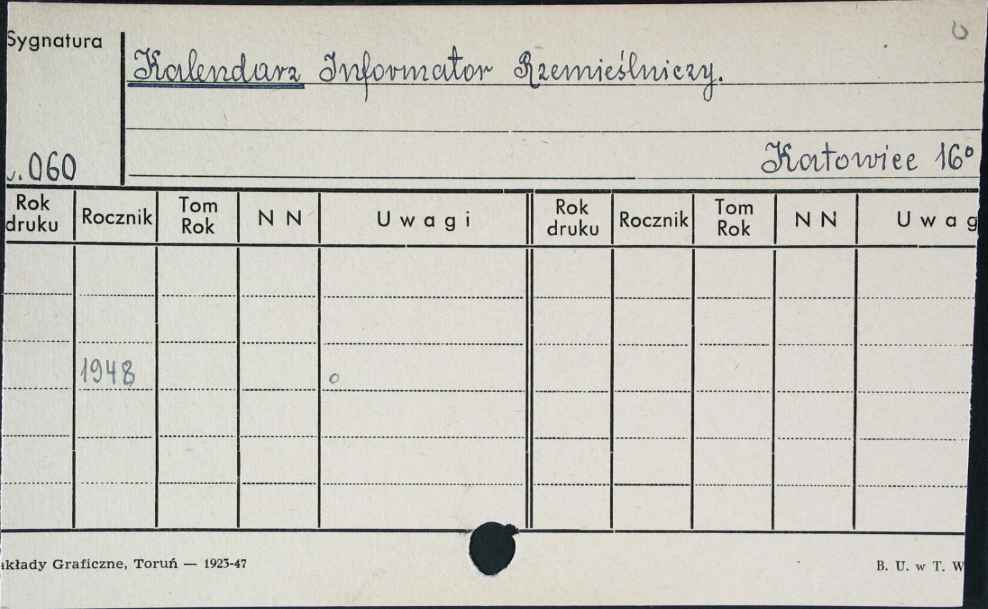 Sygnatura
Kalendarz Informator Rzemieślniczy.
060
Katowice 16°
Rok druku Rocznik Tom Rok N N Uwagi Rok druku Rocznik Tom Rok N N Uwag
1948 o
akłady Graficzne, Toruń — 1923-47 B. U. w T. W